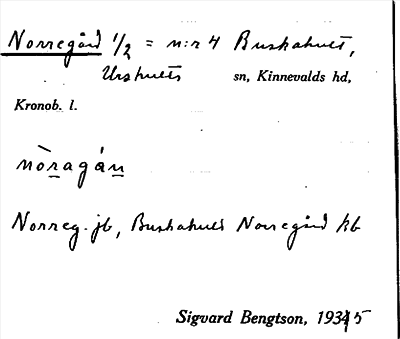 Norregård 1/2 = n:r 4 Buskahult,
Urshults sn, Kinnevalds hd,
Kronob. l.
nòragán
Norreg. jb, Buskahults Norregård kb
Sigvard Bengtson, 1935